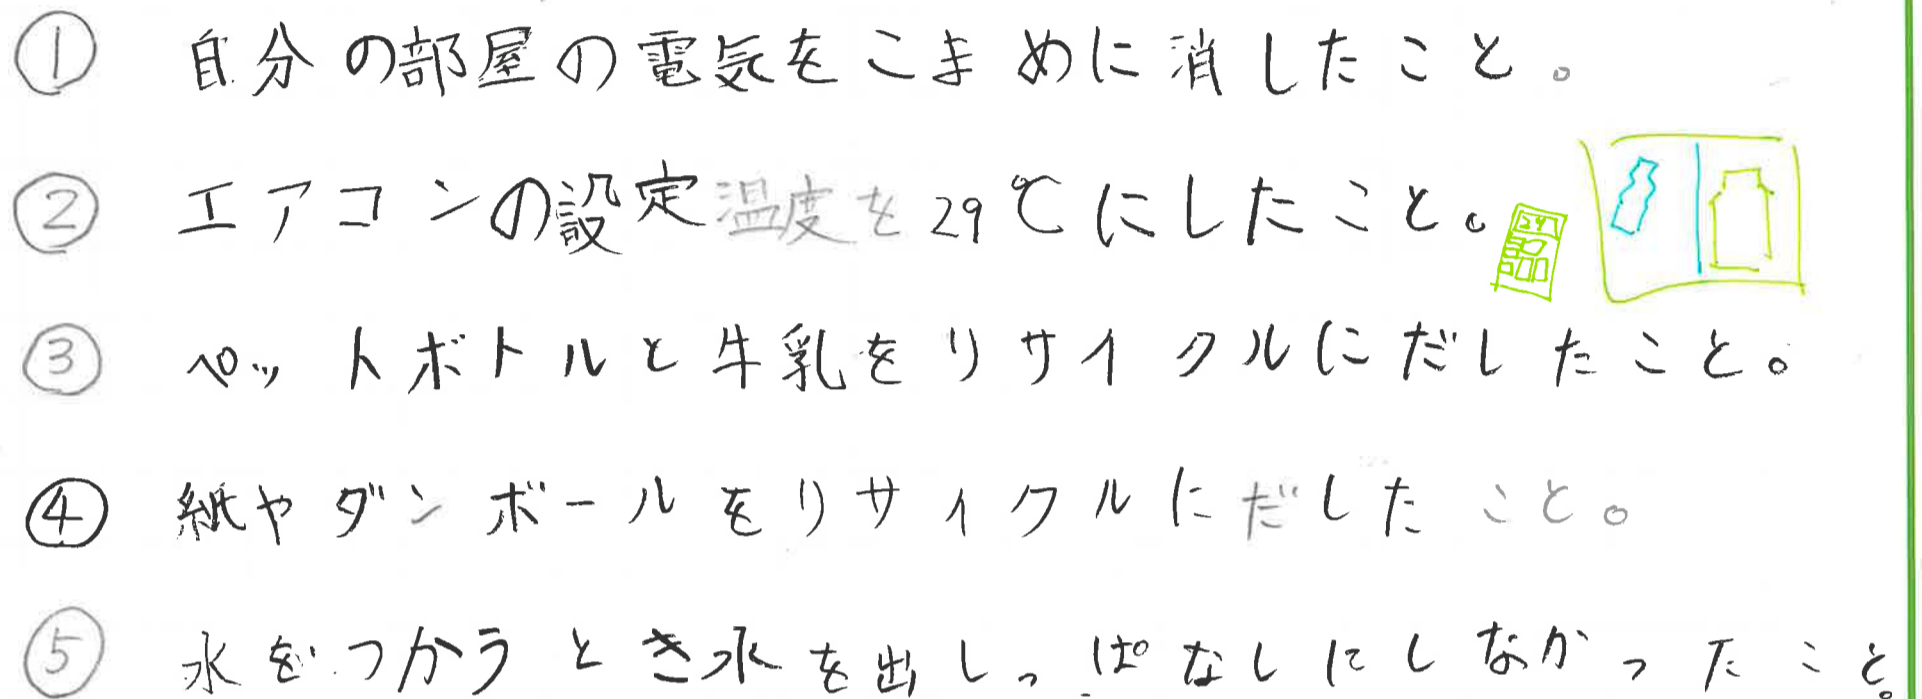 ① 自分の部屋の電気をこまめに消したこと。
② エアコンの設定温度を29℃にしたこと。
③ ペットボトルと牛乳をリサイクルにだしたこと。
④ 紙やダンボールをリサイクルにだしたこと。
⑤ 水をつかうとき水を出しっぱなしにしなかったこと。